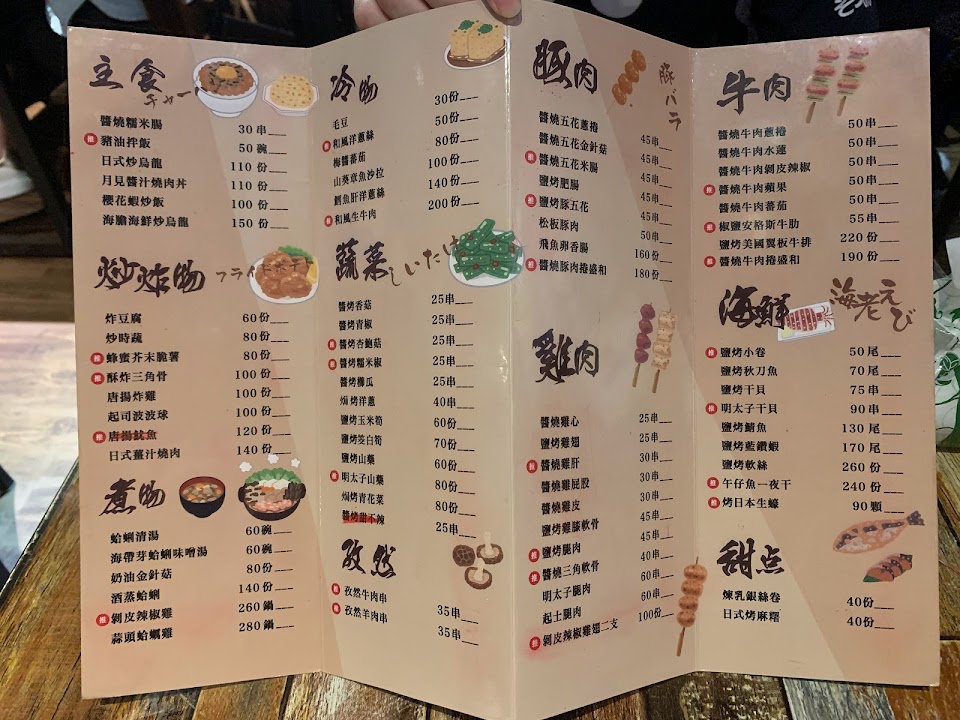 主食
チャー
醬燒糯米腸 30串___
推 豬油拌飯 50碗___
日式炒烏龍 110份___
月見醬汁燒肉丼 110份___
櫻花蝦炒飯 100份___
海膽海鮮炒烏龍 150份___
炒炸物
フライドポテト
炸豆腐 60份___
炒時蔬 80份___
推 蜂蜜芥末脆薯 80份___
推 酥炸三角骨 100份___
唐揚炸雞 100份___
起司波波球 100份___
推 唐揚魷魚 120份___
日式薑汁燒肉 140份___
煮物
蛤蜊清湯 60碗___
海帶芽蛤蜊味噌湯 60碗___
奶油金針菇 80份___
酒蒸蛤蜊 140份___
推 剝皮辣椒雞 260鍋___
蒜頭蛤蠣雞 280鍋___
冷物
毛豆 30份___
推 和風洋蔥絲 50份___
梅醬蕃茄 80份___
山葵章魚沙拉 100份___
魚肝洋蔥絲 140份___
推 和風生牛肉 200份___
蔬菜
しいたけ
醬烤香菇 25串___
醬烤青椒 25串___
推 醬烤杏鮑菇 25串___
推 醬烤糯米椒 25串___
醬烤櫛瓜 25串___
焗烤洋蔥 40串___
鹽烤玉米筍 60份___
鹽烤筊白筍 70份___
鹽烤山藥 60份___
推 明太子山藥 80份___
焗烤青花菜 80份___
醬烤甜不辣 25串___
孜然
推 孜然牛肉串 35串___
推 孜然羊肉串 35串___
豚肉
豚バラ
醬燒五花蔥捲 45串___
醬燒五花金針菇 45串___
推 醬燒五花米腸 45串___
鹽烤肥腸 45串___
推 鹽烤豚五花 45串___
松板豚肉 50串___
飛魚卵香腸 160份___
推 醬燒豚肉捲盛和 180份___
雞肉
醬燒雞心 25串___
鹽烤雞翅 25串___
推 醬燒雞肝 30串___
醬燒雞屁股 30串___
醬燒雞皮 30串___
鹽烤雞膝軟骨 45串___
推 鹽烤腿肉 45串___
推 醬燒三角軟骨 40串___
明太子腿肉 60串___
起士腿肉 60串___
推 剝皮辣椒雞翅二支 100份___
牛肉
醬燒牛肉蔥捲 50串___
醬燒牛肉水蓮 50串___
醬燒牛肉剝皮辣椒 50串___
推 醬燒牛肉蘋果 50串___
醬燒牛肉蕃茄 50串___
推 椒鹽安格斯牛肋 55串___
鹽烤美國翼板牛排 220份___
推 醬燒牛肉捲盛和 190份___
海鮮
海老えび
推 鹽烤小卷 50尾___
鹽烤秋刀魚 70尾___
鹽烤干貝 75串___
推 明太子干貝 90串___
鹽烤鯖魚 130尾___
鹽烤藍鑽蝦 170尾___
鹽烤軟絲 260份___
推 午仔魚一夜干 240份___
推 烤日本生蠔 90顆___
甜点
煉乳銀絲卷 40份___
日式烤麻糬 40份___